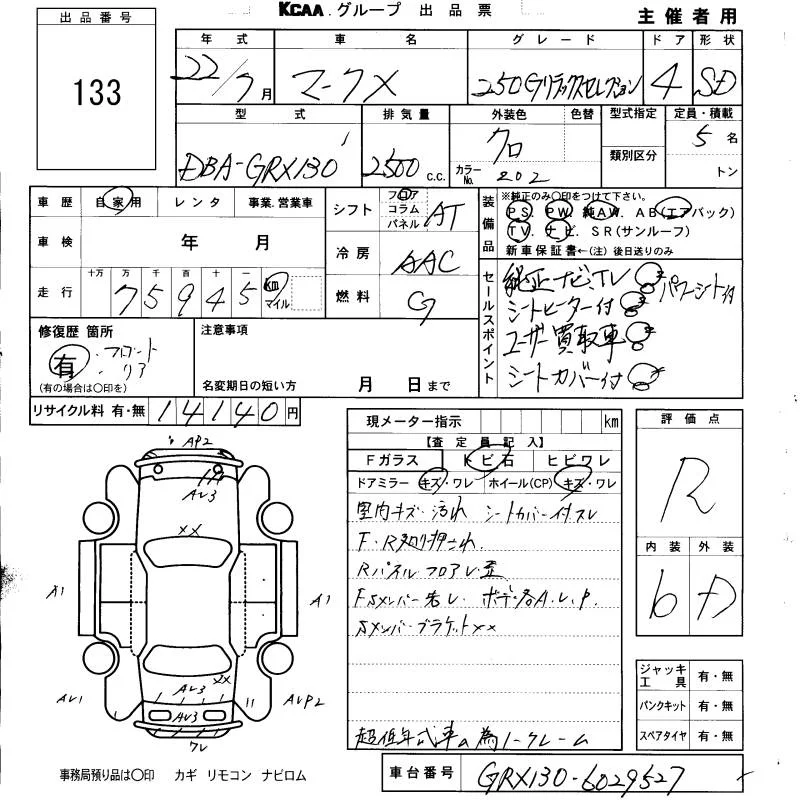 出品番号
133
KCAA グループ 出品票
主催者用
年式 車名 グレード ドア 形状
22/7月 マークX 250Gリラックスセレクション 4 SD
型式 排気量 外装色 色替 型式指定 定員・積載
類別区分
DBA-GRX130 2500 c.c. クロ カラーNo. 202 5名
トン
車歴 自家用 レンタ 事業.営業車
シフト フロア コラム パネル AT
車検 年 月
冷房 AAC
走行 十万 万 千 百 十 一
75945 km マイル
燃料 G
装備品
※純正のみ○印をつけて下さい。
PS. PW. 純AW. AB(エアバック)
TV. ナビ. SR(サンルーフ)
新車保証書←(注) 後日送りのみ
セールスポイント
純正ナビ、TV
パワーシート付
シートヒーター付
ユーザー買取車
シートカバー付
修復歴 箇所
有 ・フロント
・リア
(有の場合は○印を)
注意事項
名変期日の短い方 月 日まで
リサイクル料 有・無 14140円
現メーター指示 km
【査定員記入】
Fガラス トビ石 ヒビワレ
ドアミラー キズ・ワレ ホイール(CP) キズ・ワレ
室内キズ・汚れ シートカバー付スレ
F・R
Rパネル フロア
ボデー各A.U.P.
ブラケットXX
超低年式車の為ノークレーム
評価点
R
内装 外装
b D
AP2
AU3
XX
A1
A1
AU1
AU3
XX
AUP2
AU3
ワレ
ジャッキ工具 有・無
パンクキット 有・無
スペアタイヤ 有・無
事務局預り品は○印 カギ リモコン ナビロム
車台番号 GRX130-6029527